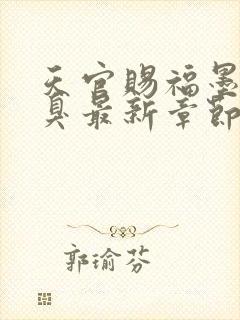 天官赐福墨
臭最新章節
郭瑜芬